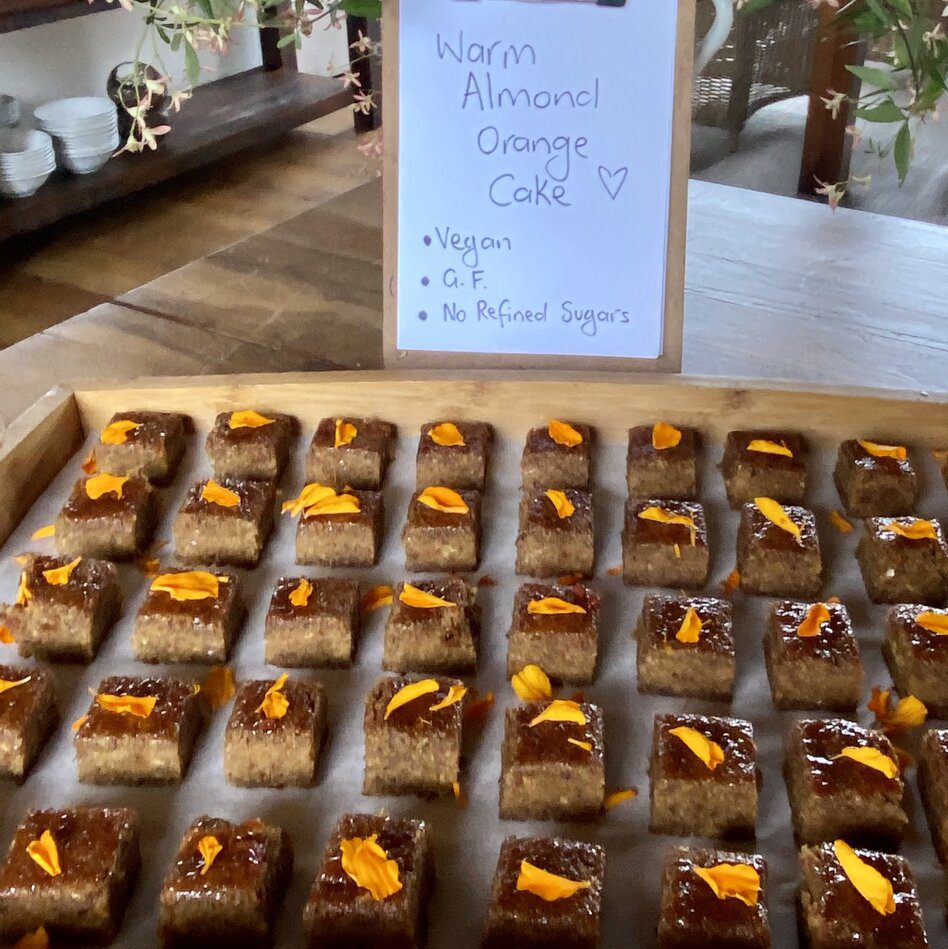 Warm
Almond
Orange
Cake ♡
• Vegan
• G.F.
• No Refined Sugars